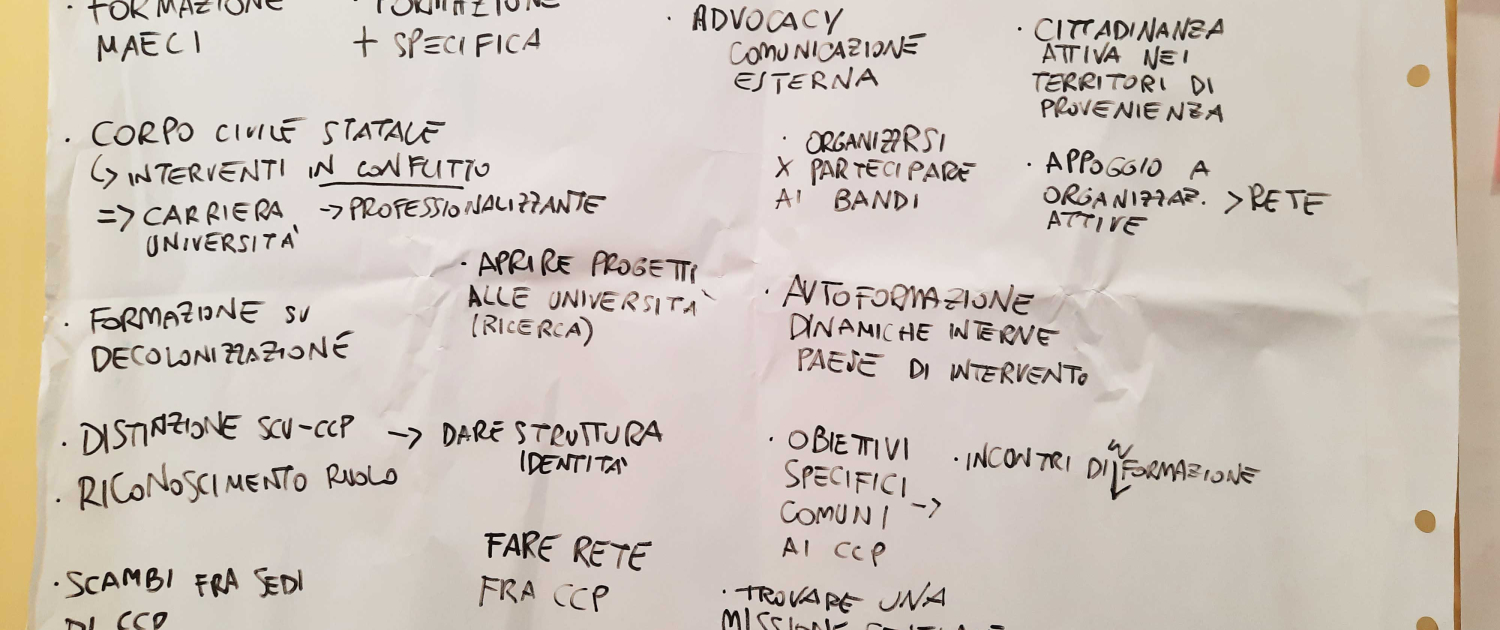 · FORMAZIONE
MAECI
· FORMAZIONE
+ SPECIFICA
· ADVOCACY
COMUNICAZIONE
ESTERNA
· CITTADINANZA
ATTIVA NEI
TERRITORI DI
PROVENIENZA
· CORPO CIVILE STATALE
↳ INTERVENTI IN CONFLITTO
=> CARRIERA -> PROFESSIONALIZZANTE
UNIVERSITA'
· ORGANIZZRSI
X PARTECIPARE
AI BANDI
· APPOGGIO A
ORGANIZZAZ. > RETE
ATTIVE
· APRIRE PROGETTI
ALLE UNIVERSITA'
(RICERCA)
· FORMAZIONE SU
DECOLONIZZAZIONE
· AUTOFORMAZIONE
DINAMICHE INTERNE
PAESE DI INTERVENTO
· DISTINZIONE SCU-CCP -> DARE STRUTTURA
IDENTITA'
· RICONOSCIMENTO RUOLO
· OBIETTIVI
SPECIFICI
COMUNI ->
AI CCP
· INCONTRI DI FORMAZIONE
IN
FARE RETE
FRA CCP
· SCAMBI FRA SEDI
DI CCP
· TROVARE UNA
MISSIONE